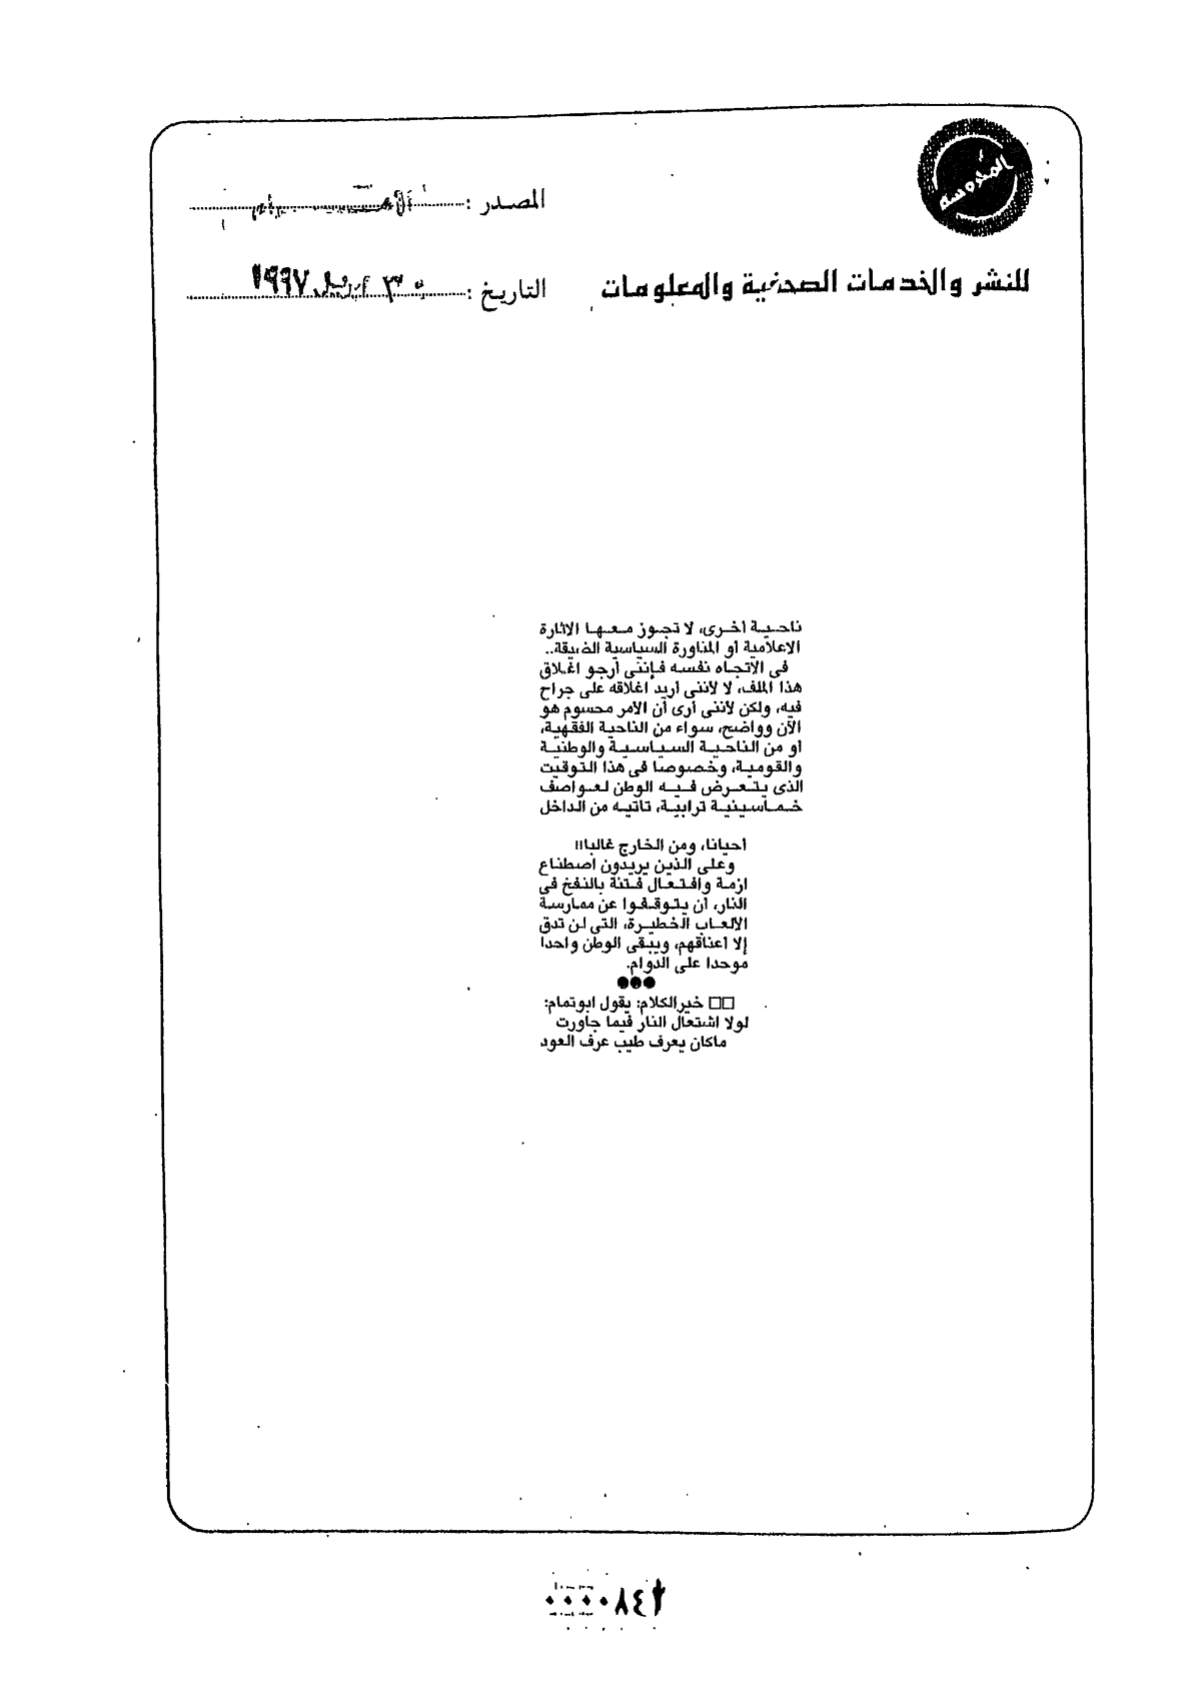 المحروسة
المصدر :
للنشر والخدمات الصحفية والمعلومات
التاريخ : ٣٠ ابريل ١٩٩٧
ناحية أخرى، لا تجوز معها الاثارة
الاعلامية أو المناورة السياسية الضيقة..
فى الاتجاه نفسه فإننى أرجو اغلاق
هذا الملف، لا لأننى أريد اغلاقه على جراح
فيه، ولكن لأننى أرى أن الامر محسوم هو
الآن وواضح، سواء من الناحية الفقهية،
او من الناحية السياسية والوطنية
والقومية، وخصوصا فى هذا التوقيت
الذى يتعرض فيه الوطن لعواصف
خماسينية ترابية، تاتيه من الداخل
احيانا، ومن الخارج غالبا!!
وعلى الذين يريدون اصطناع
ازمة وافتعال فتنة بالنفخ فى
النار، ان يتوقفوا عن ممارسة
الالعاب الخطيرة، التى لن تدق
إلا اعناقهم، ويبقى الوطن واحدا
موحدا على الدوام.
●●●
□□ خير الكلام: يقول ابوتمام:
لولا اشتعال النار فيما جاورت
ماكان يعرف طيب عرف العود